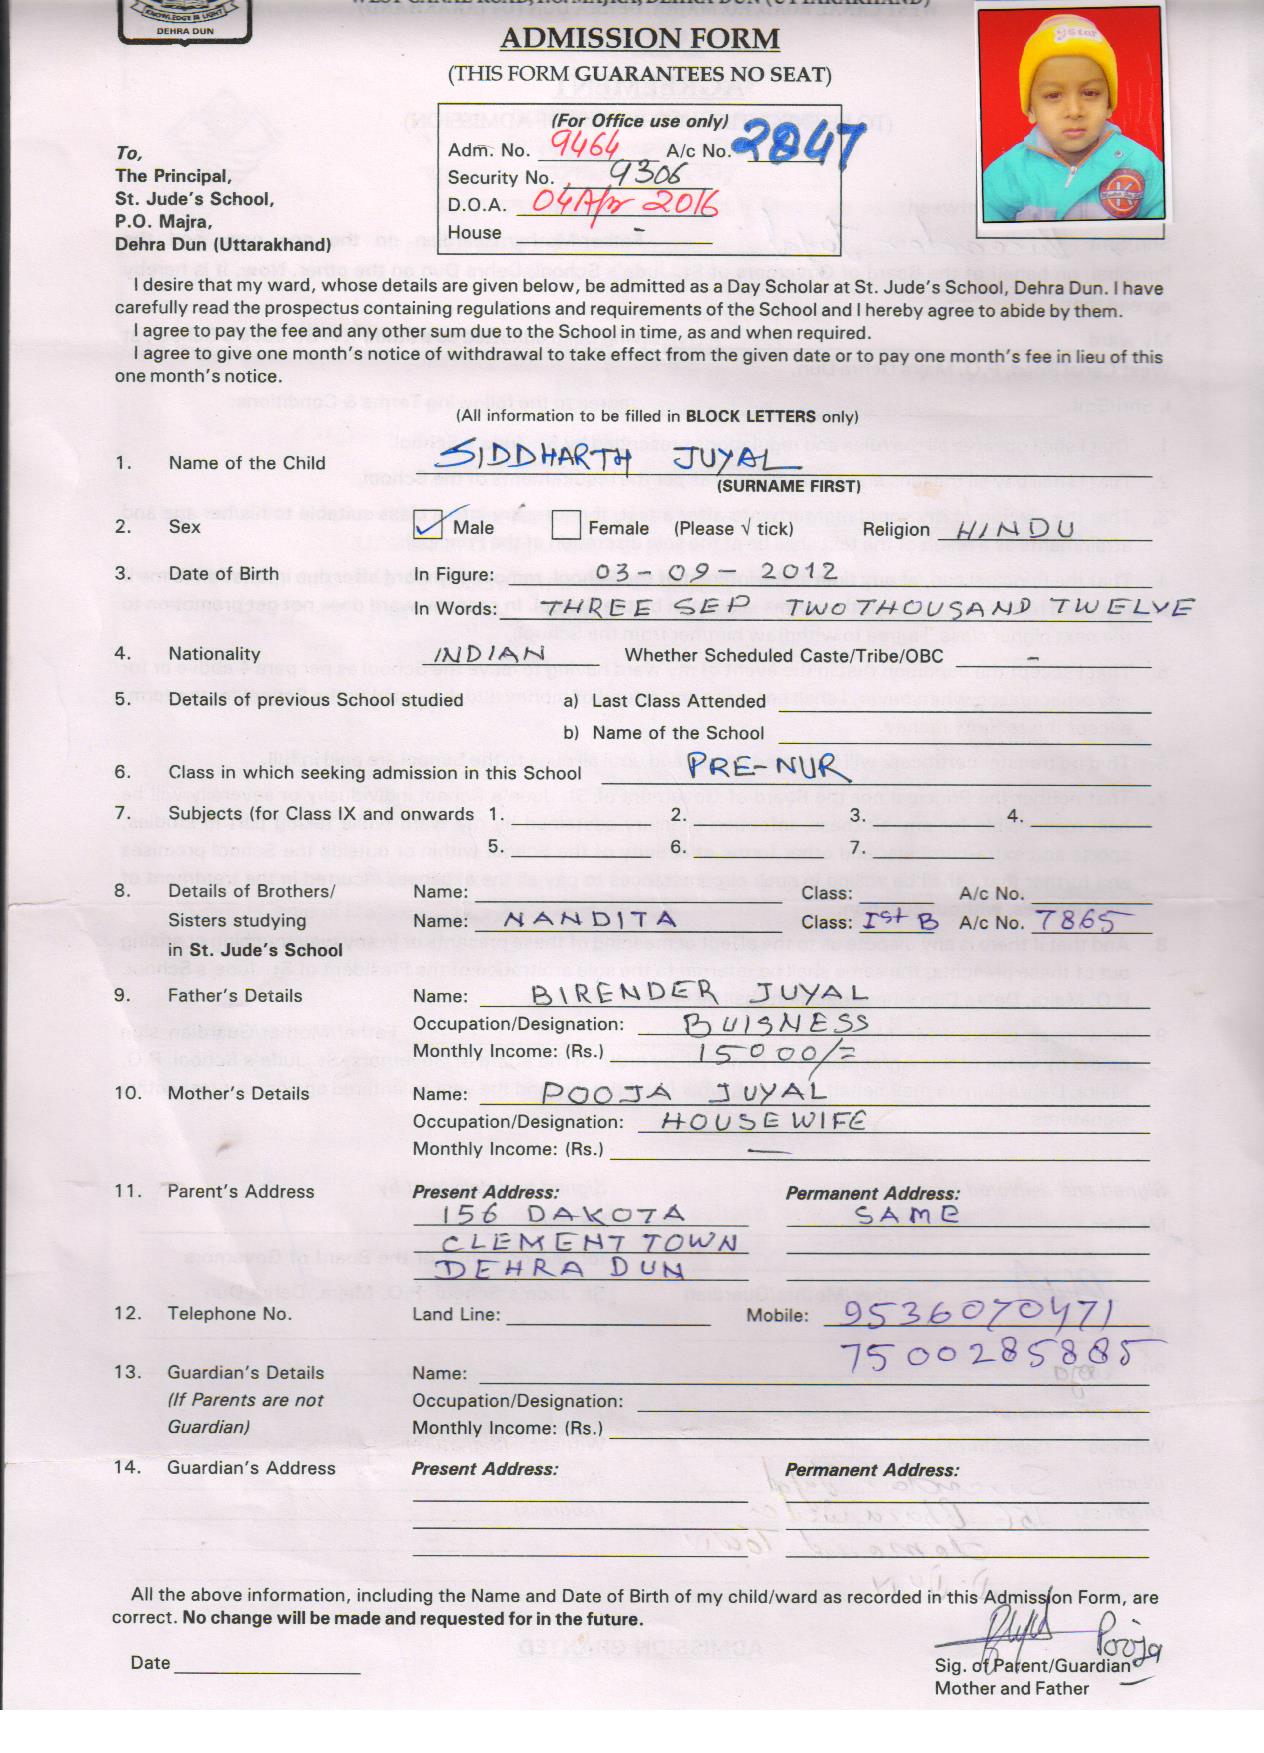 KNOWLEDGE IS LIGHT
DEHRA DUN
WEST CANAL ROAD, P.O. MAJRA, DEHRA DUN (UTTARAKHAND)
ADMISSION FORM
(THIS FORM GUARANTEES NO SEAT)
(For Office use only)
Adm. No. 9464 A/c No. 2847
Security No. 9306
D.O.A. 04 Apr 2016
House -
To,
The Principal,
St. Jude's School,
P.O. Majra,
Dehra Dun (Uttarakhand)
I desire that my ward, whose details are given below, be admitted as a Day Scholar at St. Jude's School, Dehra Dun. I have
carefully read the prospectus containing regulations and requirements of the School and I hereby agree to abide by them.
I agree to pay the fee and any other sum due to the School in time, as and when required.
I agree to give one month's notice of withdrawal to take effect from the given date or to pay one month's fee in lieu of this
one month's notice.
(All information to be filled in BLOCK LETTERS only)
1. Name of the Child SIDDHARTH JUYAL
(SURNAME FIRST)
2. Sex ✓ Male Female (Please √ tick) Religion HINDU
3. Date of Birth In Figure: 03-09-2012
In Words: THREE SEP TWO THOUSAND TWELVE
4. Nationality INDIAN Whether Scheduled Caste/Tribe/OBC -
5. Details of previous School studied a) Last Class Attended
b) Name of the School
6. Class in which seeking admission in this School PRE-NUR
7. Subjects (for Class IX and onwards 1. 2. 3. 4.
5. 6. 7.
8. Details of Brothers/ Name: Class: A/c No.
Sisters studying Name: NANDITA Class: Ist B A/c No. 7865
in St. Jude's School
9. Father's Details Name: BIRENDER JUYAL
Occupation/Designation: BUISNESS
Monthly Income: (Rs.) 15000/=
10. Mother's Details Name: POOJA JUYAL
Occupation/Designation: HOUSE WIFE
Monthly Income: (Rs.) —
11. Parent's Address Present Address: Permanent Address:
156 DAKOTA SAME
CLEMENT TOWN
DEHRA DUN
12. Telephone No. Land Line: Mobile: 9536070471
7500285885
13. Guardian's Details Name:
(If Parents are not Occupation/Designation:
Guardian) Monthly Income: (Rs.)
14. Guardian's Address Present Address: Permanent Address:
All the above information, including the Name and Date of Birth of my child/ward as recorded in this Admission Form, are
correct. No change will be made and requested for in the future.
Pooja
Date Sig. of Parent/Guardian
Mother and Father